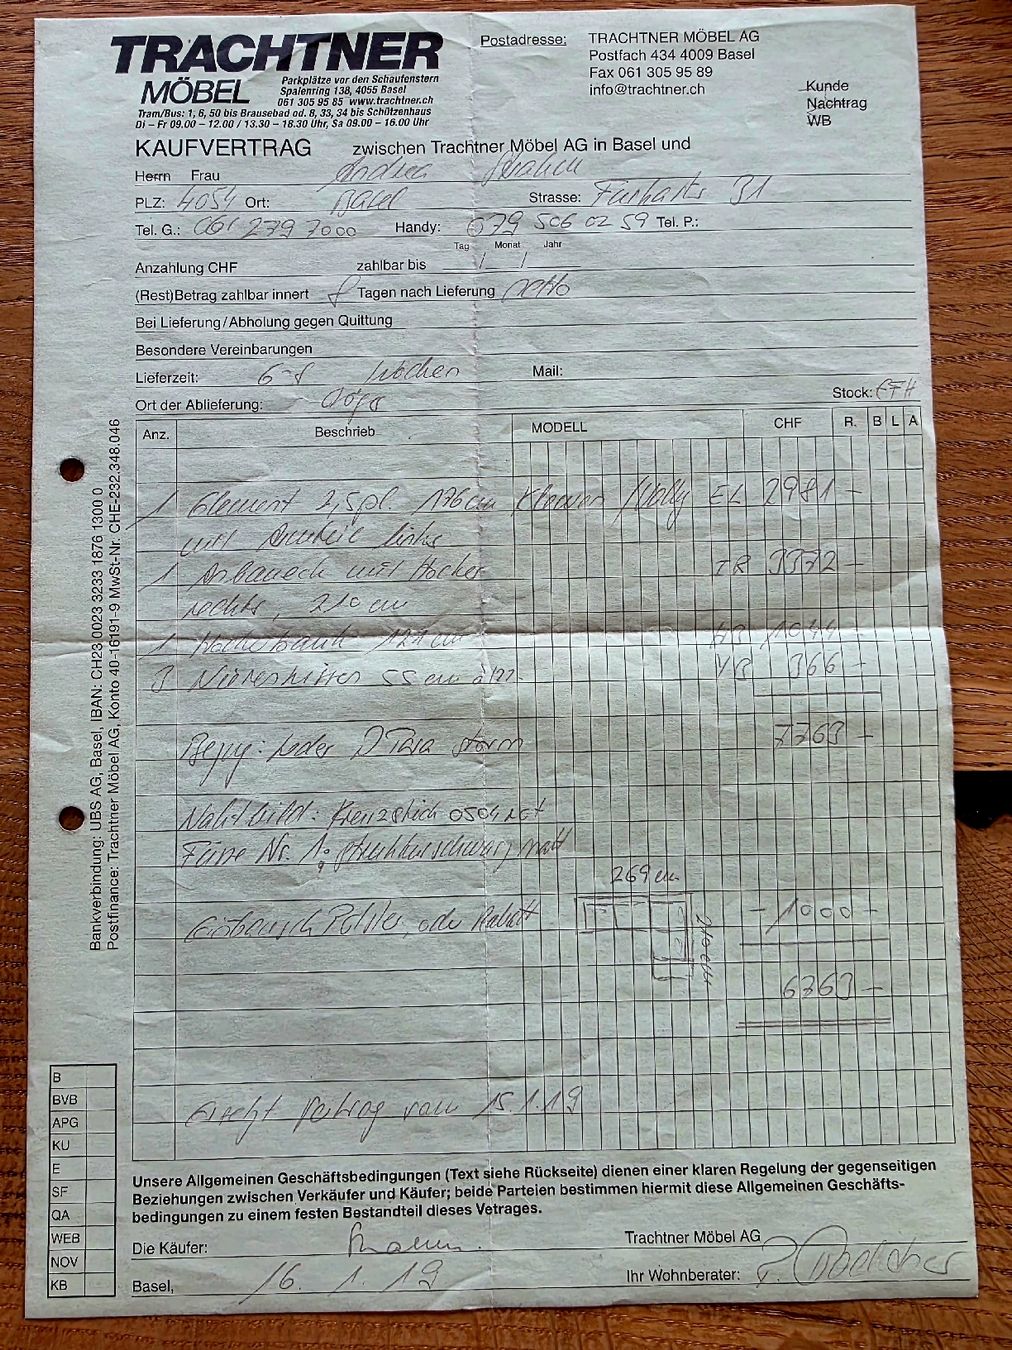 TRACHTNER
MÖBEL
Parkplätze vor den Schaufenstern
Spalenring 138, 4055 Basel
061 305 95 85 www.trachtner.ch
Tram/Bus: 1, 6, 50 bis Brausebad od. 8, 33, 34 bis Schützenhaus
Di – Fr 09.00 – 12.00 / 13.30 – 18.30 Uhr, Sa 09.00 – 16.00 Uhr
Postadresse: TRACHTNER MÖBEL AG
Postfach 434 4009 Basel
Fax 061 305 95 89
info@trachtner.ch
Kunde
Nachtrag
WB
KAUFVERTRAG zwischen Trachtner Möbel AG in Basel und
Herrn Frau Andrea
PLZ: 4054 Ort: Basel Strasse: 91
Tel. G.: 061 279 7000 Handy: 079 506 02 59 Tel. P.:
Tag Monat Jahr
Anzahlung CHF zahlbar bis / /
(Rest)Betrag zahlbar innert 8 Tagen nach Lieferung netto
Bei Lieferung/Abholung gegen Quittung
Besondere Vereinbarungen
Lieferzeit: 6-8 Wochen Mail:
Ort der Ablieferung: Stock:
Anz. Beschrieb MODELL CHF R. B L A
1 Element 2,5 pl. 176 cm EL 2981 –
mit Armteil links
1 Anbaueck mit Hocker 3372 –
rechts, 210 cm
1 Hockerbank cm 1044 –
3 Nierenkissen 55 cm à 122.- 366 –
7763 –
Bezug: Leder
Nahtbild: Kreuzstich
Füsse Nr. 1: strukturschwarz matt
269 cm
Eintausch Polster, oder Rabatt – 1000 –
210 cm
6763 –
Ersetzt Vertrag vom 15.1.19
Bankverbindung: UBS AG, Basel, IBAN: CH23 0023 3233 1876 1300 0
Postfinance: Trachtner Möbel AG, Konto 40-16191-9 MwSt-Nr. CHE-232.348.046
B
BVB
APG
KU
E
SF
QA
WEB
NOV
KB
Unsere Allgemeinen Geschäftsbedingungen (Text siehe Rückseite) dienen einer klaren Regelung der gegenseitigen
Beziehungen zwischen Verkäufer und Käufer; beide Parteien bestimmen hiermit diese Allgemeinen Geschäfts-
bedingungen zu einem festen Bestandteil dieses Vetrages.
Die Käufer: Trachtner Möbel AG
Basel, 16. 1. 19 Ihr Wohnberater: